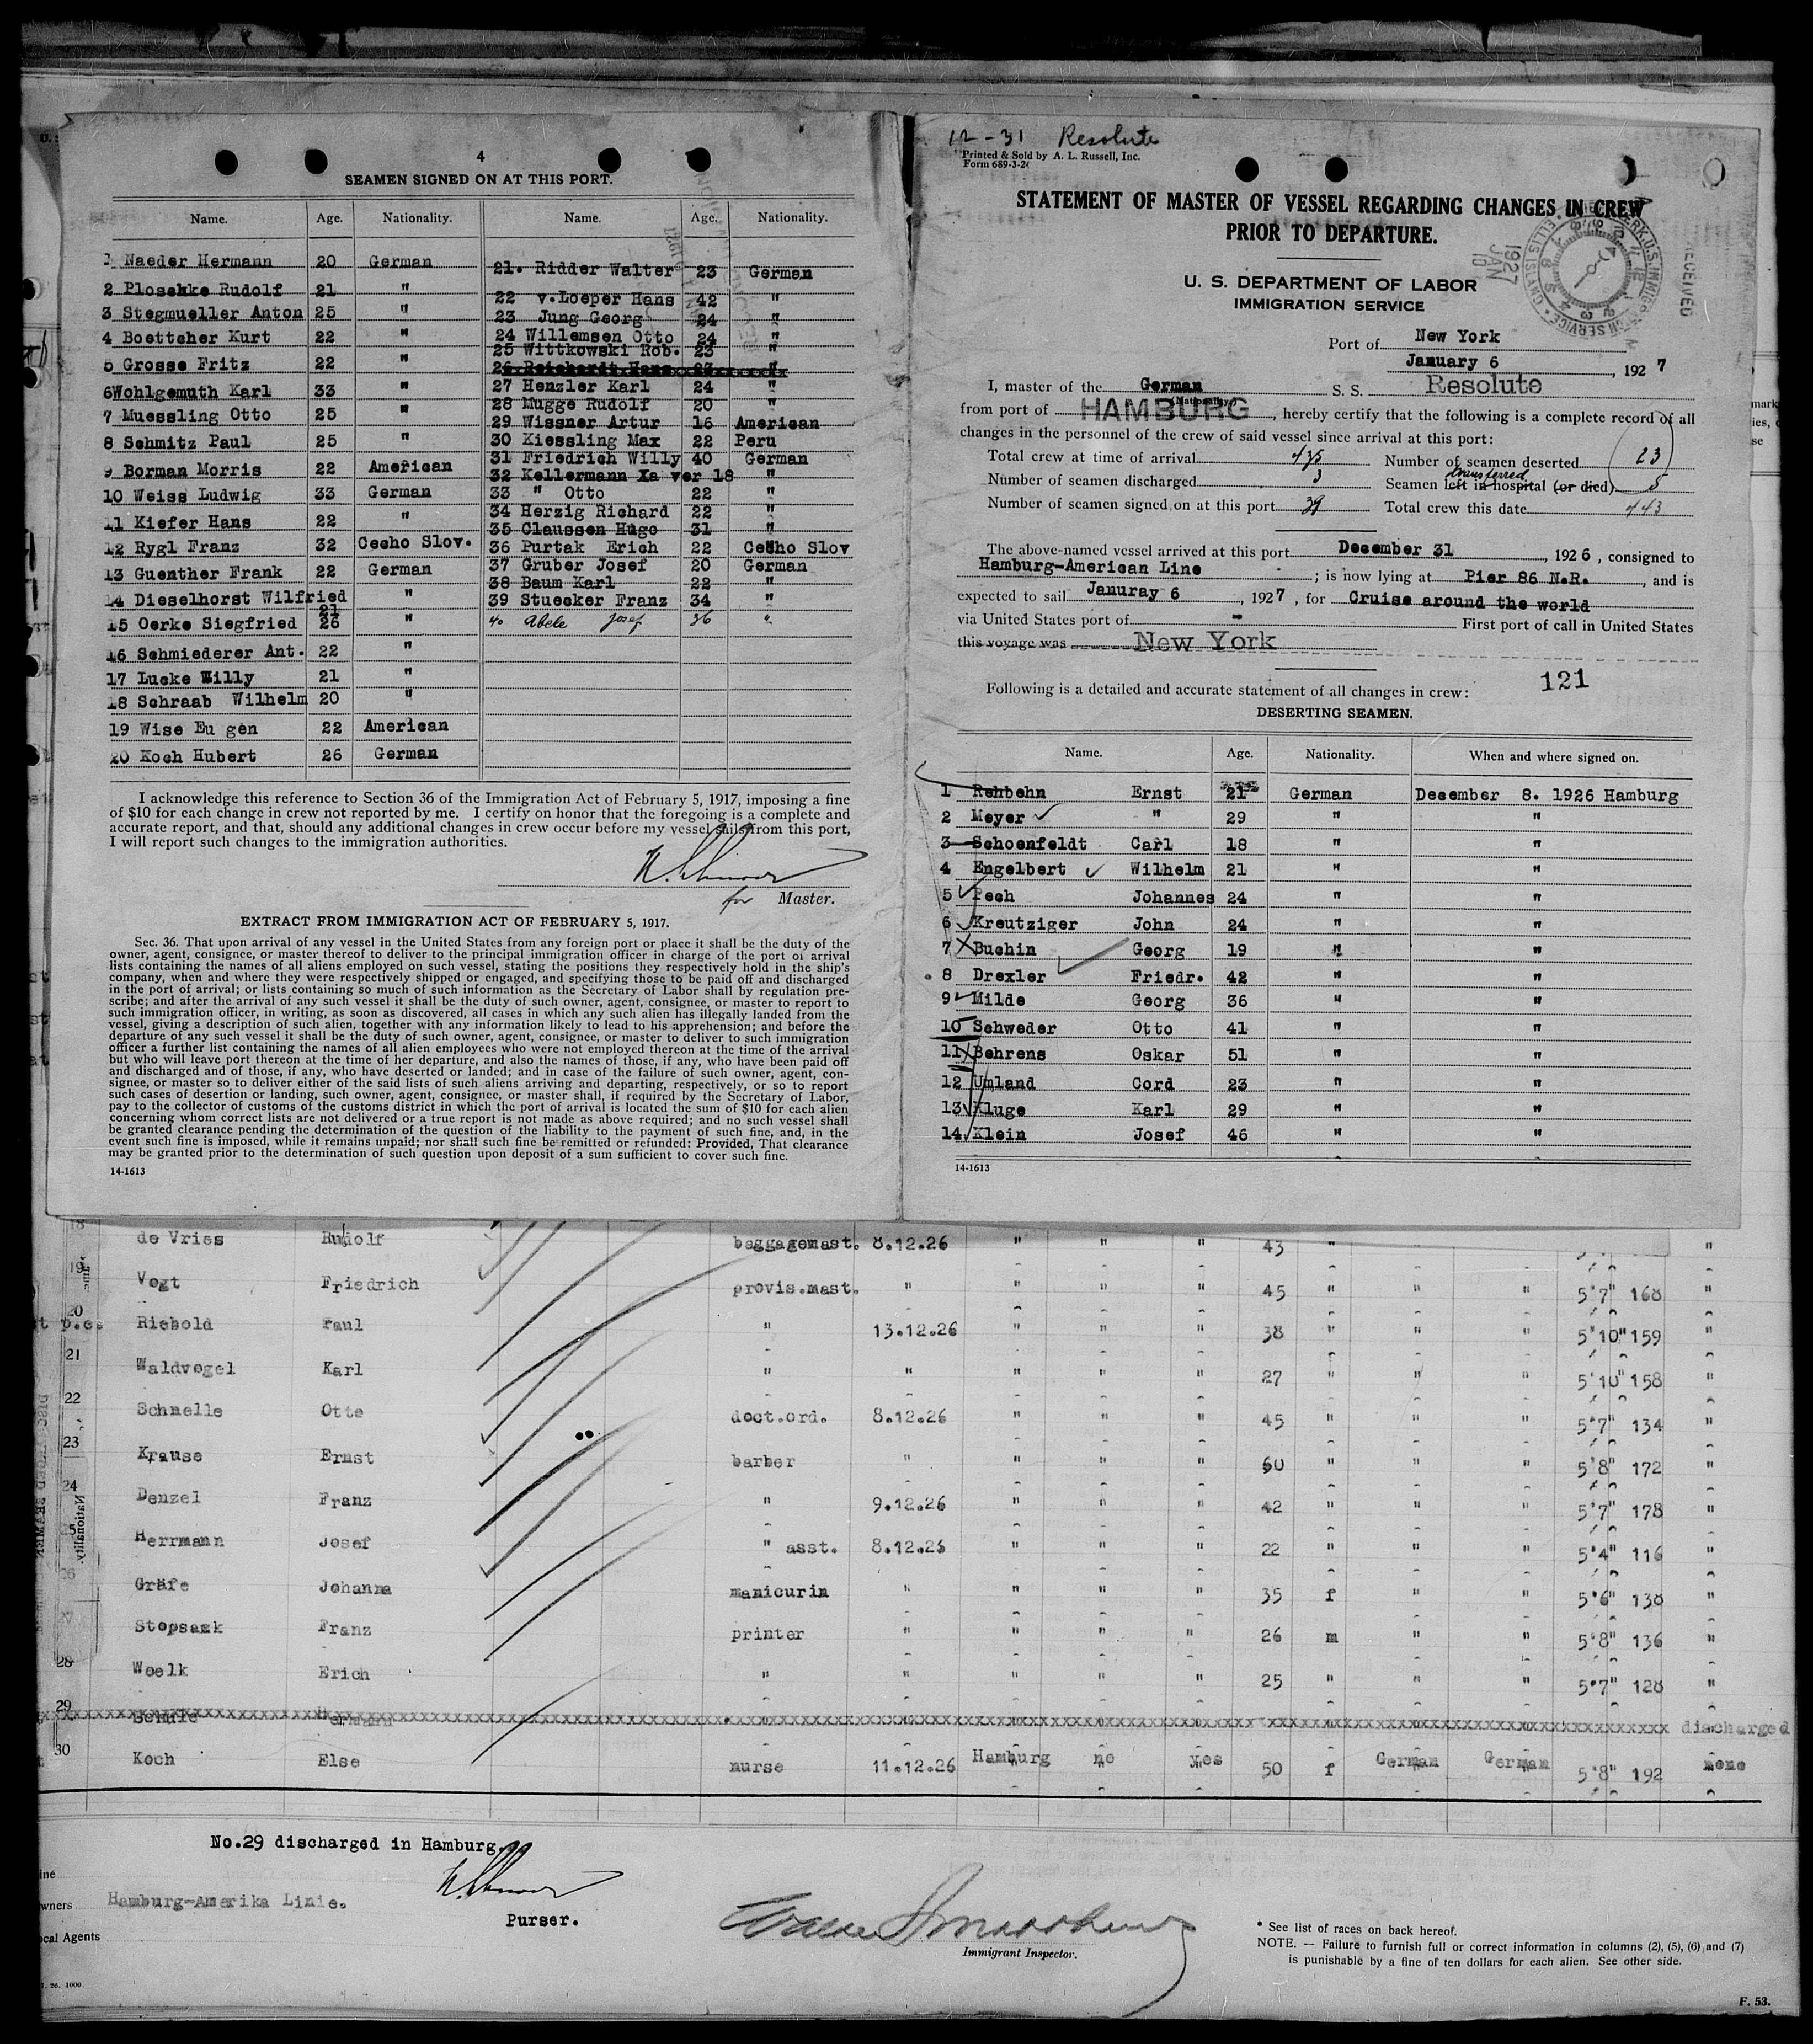 4
SEAMEN SIGNED ON AT THIS PORT.
Name. Age. Nationality. Name. Age. Nationality.
1 Naeder Hermann 20 German
2 Ploschke Rudolf 21 "
3 Stegmueller Anton 25 "
4 Boettcher Kurt 22 "
5 Grosse Fritz 22 "
6 Wohlgemuth Karl 33 "
7 Muessling Otto 25 "
8 Schmitz Paul 25 "
9 Borman Morris 22 American
10 Weiss Ludwig 33 German
11 Kiefer Hans 22 "
12 Rygl Franz 32 Cecho Slov.
13 Guenther Frank 22 German
14 Dieselhorst Wilfried 21 "
15 Oerke Siegfried 26 "
16 Schmiederer Ant. 22 "
17 Lucke Willy 21 "
18 Schraab Wilhelm 20 "
19 Wise Eu gen 22 American
20 Koch Hubert 26 German
21. Ridder Walter 23 German
22 v.Loeper Hans 42 "
23 Jung Georg 24 "
24 Willemsen Otto 24 "
25 Wittkowski Rob. 23 "
26 Reichardt Hans 23 "
27 Henzler Karl 24 "
28 Mugge Rudolf 20 "
29 Wissner Artur 16 American
30 Kiessling Max 22 Peru
31 Friedrich Willy 40 German
32 Kellermann Xa ver 18 "
33 " Otto 22 "
34 Herzig Richard 22 "
35 Claussen Hugo 31 "
36 Purtak Erich 22 Cecho Slov
37 Gruber Josef 20 German
38 Baum Karl 22 "
39 Stuecker Franz 34 "
40 Abele Josef 36 "
I acknowledge this reference to Section 36 of the Immigration Act of February 5, 1917, imposing a fine
of $10 for each change in crew not reported by me. I certify on honor that the foregoing is a complete and
accurate report, and that, should any additional changes in crew occur before my vessel sails from this port,
I will report such changes to the immigration authorities.
for Master.
EXTRACT FROM IMMIGRATION ACT OF FEBRUARY 5, 1917.
Sec. 36. That upon arrival of any vessel in the United States from any foreign port or place it shall be the duty of the
owner, agent, consignee, or master thereof to deliver to the principal immigration officer in charge of the port of arrival
lists containing the names of all aliens employed on such vessel, stating the positions they respectively hold in the ship's
company, when and where they were respectively shipped or engaged, and specifying those to be paid off and discharged
in the port of arrival; or lists containing so much of such information as the Secretary of Labor shall by regulation pre-
scribe; and after the arrival of any such vessel it shall be the duty of such owner, agent, consignee, or master to report to
such immigration officer, in writing, as soon as discovered, all cases in which any such alien has illegally landed from the
vessel, giving a description of such alien, together with any information likely to lead to his apprehension; and before the
departure of any such vessel it shall be the duty of such owner, agent, consignee, or master to deliver to such immigration
officer a further list containing the names of all alien employees who were not employed thereon at the time of the arrival
but who will leave port thereon at the time of her departure, and also the names of those, if any, who have been paid off
and discharged and of those, if any, who have deserted or landed; and in case of the failure of such owner, agent, con-
signee, or master so to deliver either of the said lists of such aliens arriving and departing, respectively, or so to report
such cases of desertion or landing, such owner, agent, consignee, or master shall, if required by the Secretary of Labor,
pay to the collector of customs of the customs district in which the port of arrival is located the sum of $10 for each alien
concerning whom correct lists are not delivered or a true report is not made as above required; and no such vessel shall
be granted clearance pending the determination of the question of the liability to the payment of such fine, and, in the
event such fine is imposed, while it remains unpaid; nor shall such fine be remitted or refunded: Provided, That clearance
may be granted prior to the determination of such question upon deposit of a sum sufficient to cover such fine.
14-1613
12-31 Resolute
Printed & Sold by A. L. Russell, Inc.
Form 689-3-24
STATEMENT OF MASTER OF VESSEL REGARDING CHANGES IN CREW
PRIOR TO DEPARTURE.
RECEIVED
1927 JAN 10
U. S. DEPARTMENT OF LABOR
IMMIGRATION SERVICE
Port of New York
January 6, 1927
I, master of the German S. S. Resolute
(Nationality)
from port of HAMBURG, hereby certify that the following is a complete record of all
changes in the personnel of the crew of said vessel since arrival at this port:
Total crew at time of arrival 435 Number of seamen deserted 23
transferred
Number of seamen discharged 3 Seamen left in hospital (or died) 5
Number of seamen signed on at this port 39 Total crew this date 443
The above-named vessel arrived at this port December 31, 1926, consigned to
Hamburg-American Line; is now lying at Pier 86 N.R., and is
expected to sail Januray 6, 1927, for Cruise around the world
via United States port of - First port of call in United States
this voyage was New York
121
Following is a detailed and accurate statement of all changes in crew:
DESERTING SEAMEN.
Name. Age. Nationality. When and where signed on.
1 Rehbehn Ernst 21 German December 8. 1926 Hamburg
2 Meyer " 29 " "
3 Schoenfeldt Carl 18 " "
4 Engelbert Wilhelm 21 " "
5 Pech Johannes 24 " "
6 Kreutziger John 24 " "
7 Buchin Georg 19 " "
8 Drexler Friedr. 42 " "
9 Milde Georg 36 " "
10 Schweder Otto 41 " "
11 Behrens Oskar 51 " "
12 Umland Cord 23 " "
13 Kluge Karl 29 " "
14 Klein Josef 46 " "
14-1613
18 de Vries Rudolf baggagemast. 8.12.26 " " " 43 " "
19 Vogt Friedrich provis.mast. " " " " 45 " " " 5'7" 168 "
20 Riebold Paul " 13.12.26 " " " 38 " " " 5'10" 159 "
21 Waldvogel Karl " " " " " 27 " " " 5'10" 158 "
22 Schnelle Otto doct.ord. 8.12.26 " " " 45 " " " 5'7" 134 "
23 Krause Ernst barber " " " " 60 " " " 5'8" 172 "
24 Denzel Franz " 9.12.26 " " " 42 " " " 5'7" 178 "
25 Herrmann Josef " asst. 8.12.26 " " " 22 " " " 5'4" 116 "
26 Gräfe Johanna manicurin " " " " 35 f " " 5'6" 138 "
27 Stopsack Franz printer " " " " 26 m " " 5'8" 136 "
28 Woelk Erich " " " " " 25 " " " 5'7" 128 "
29 Hermann discharged
30 Koch Else nurse 11.12.26 Hamburg no yes 50 f German German 5'8" 192 none
No.29 discharged in Hamburg.
Hamburg-Amerika Linie.
Purser.
Immigrant Inspector.
* See list of races on back hereof.
NOTE. — Failure to furnish full or correct information in columns (2), (5), (6) and (7)
is punishable by a fine of ten dollars for each alien. See other side.
F. 53.